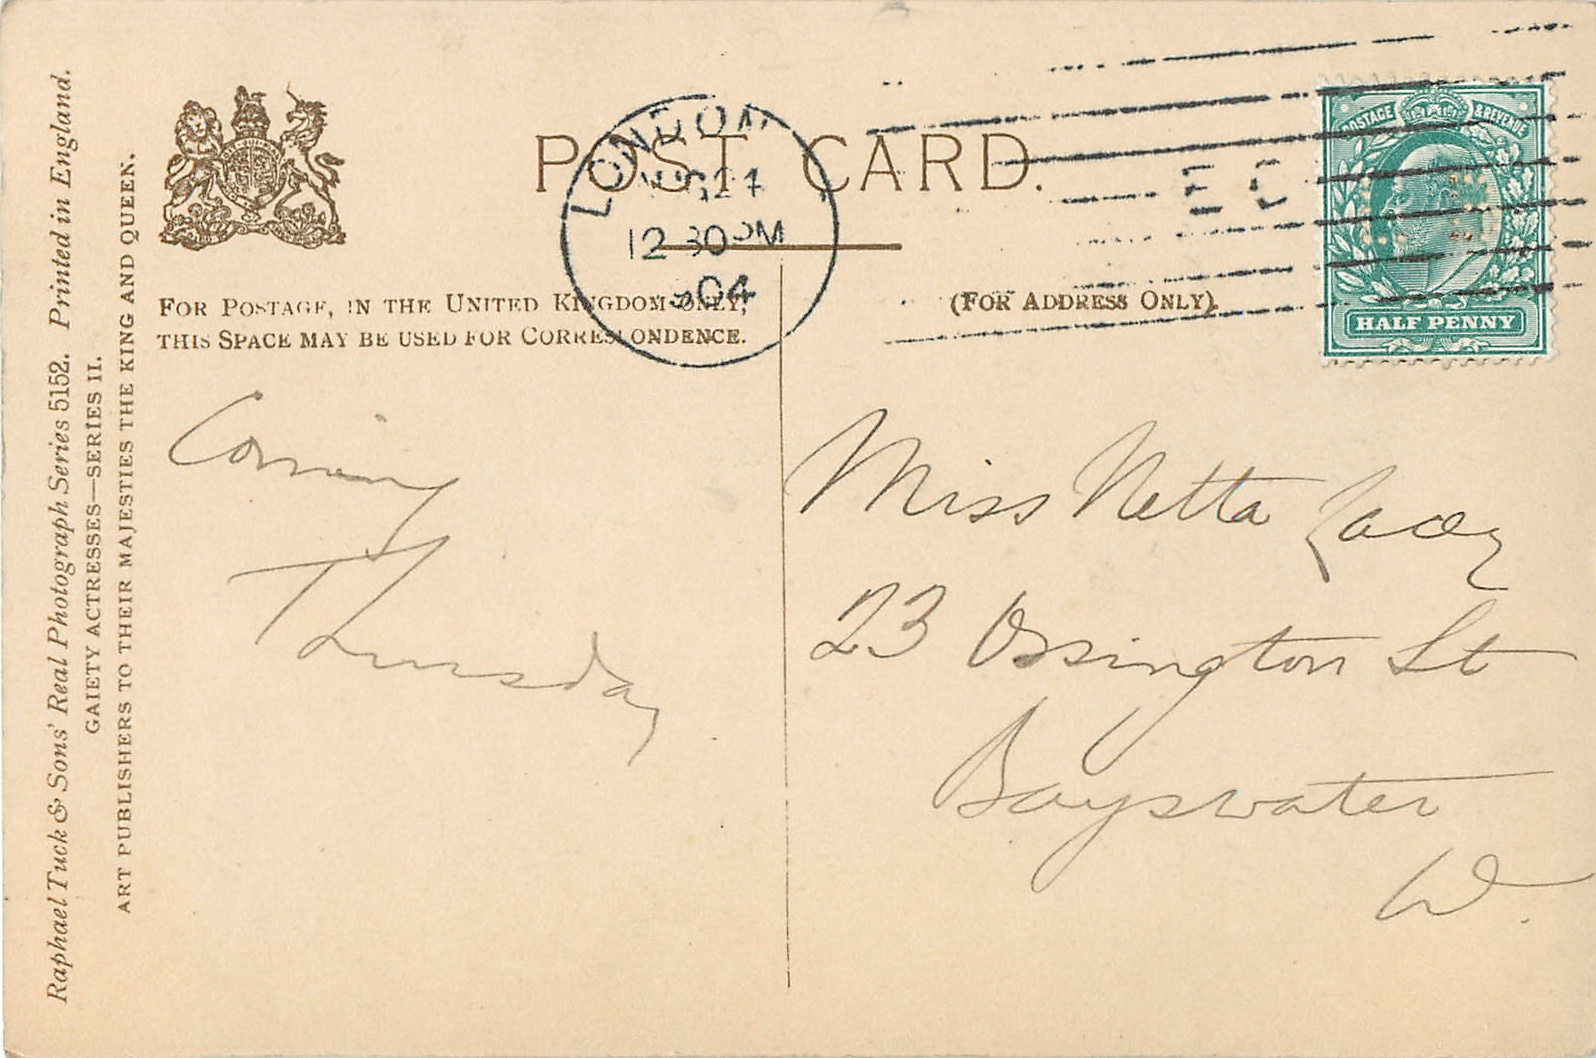 Raphael Tuck & Sons' Real Photograph Series 5152. Printed in England.
GAIETY ACTRESSES—SERIES II.
ART PUBLISHERS TO THEIR MAJESTIES THE KING AND QUEEN.
POST CARD.
FOR POSTAGE, IN THE UNITED KINGDOM ONLY,
THIS SPACE MAY BE USED FOR CORRESPONDENCE.
(FOR ADDRESS ONLY).
LONDON
12 30 PM
04
E C
POSTAGE & REVENUE
HALF PENNY
Coming
Thursday
Miss Netta
23 Ossington St
Bayswater
W.